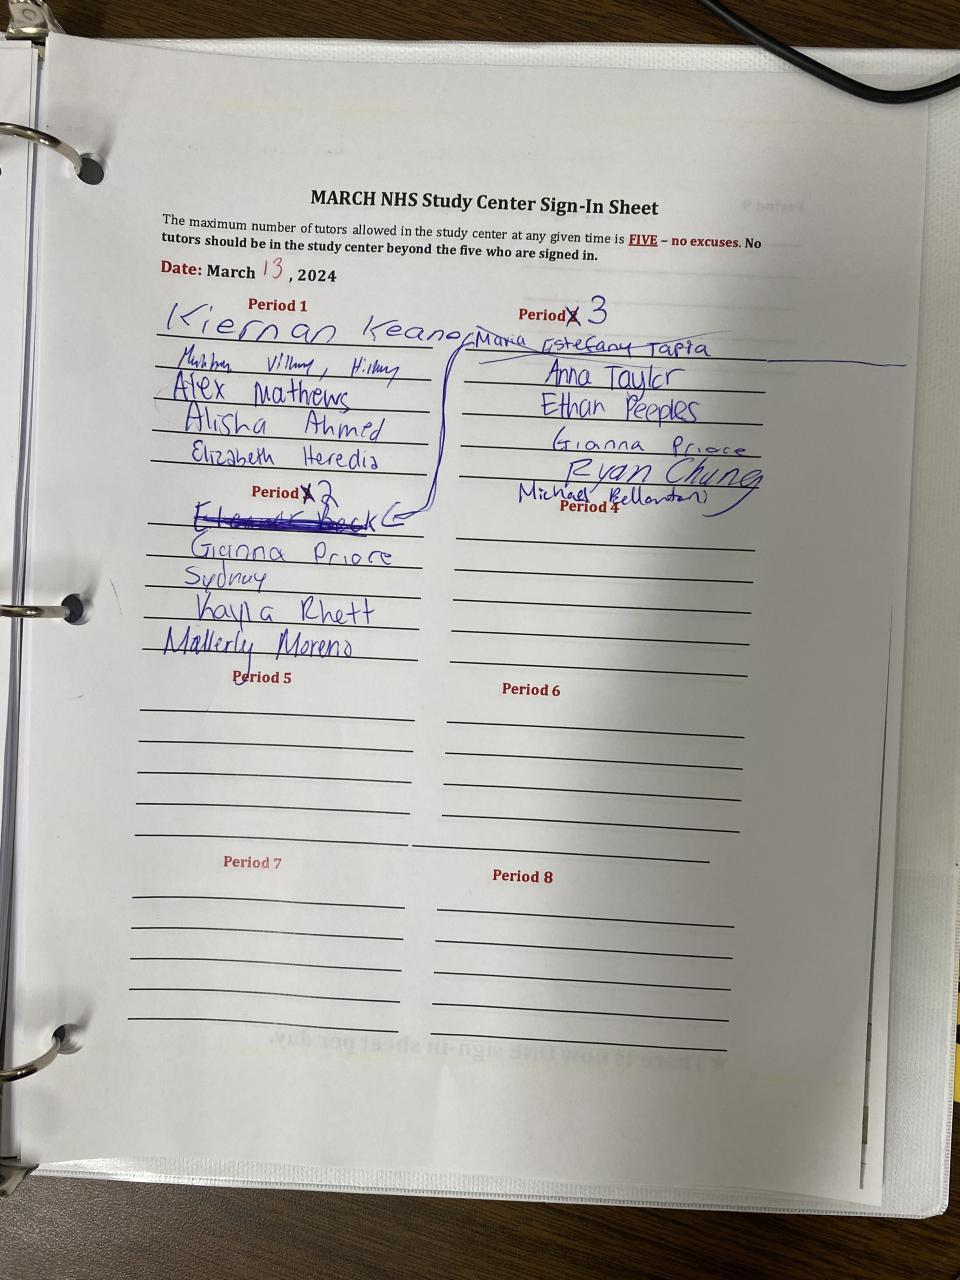 MARCH NHS Study Center Sign-In Sheet
The maximum number of tutors allowed in the study center at any given time is FIVE – no excuses. No
tutors should be in the study center beyond the five who are signed in.
Date: March 13, 2024
Period 1
Kiernan Keane
Hilary
Alex Mathews
Alisha Ahmed
Elizabeth Heredia
Period 2
Beck
Gianna Priore
Sydney
Kayla Rhett
Mallerly Moreno
Period 3
Maria Estefany Tapia
Anna Taylor
Ethan Peeples
Gianna Priore
Ryan Chung
Michael Bellantoni
Period 4
Period 5
Period 6
Period 7
Period 8
Period 9
* There is now ONE sign-in sheet per day.